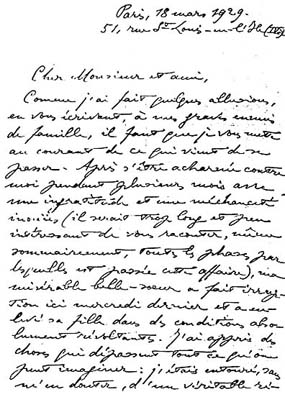 Paris, 18 mars 1929.
51, rue St Louis-en-l'Ile (IVe)
Cher Monsieur et ami,
Comme j'ai fait quelques allusions,
en vous écrivant, à mes graves ennuis
de famille, il faut que je vous mette
au courant de ce qui vient de se
passer. Après s'être acharnée contre
moi pendant plusieurs mois avec
une ingratitude et une méchanceté
inouïes (il serait trop long et peu
intéressant de vous raconter, même
sommairement, toutes les phases par
lesquelles est passée cette affaire), ma
misérable belle-sœur a fait irrup-
tion ici mercredi dernier et a en-
levé sa fille dans des conditions abso-
lument révoltantes. J'ai appris des
choses qui dépassent tout ce qu'on
peut imaginer: j'étais entouré, sans
m'en douter, d'un véritable ré-